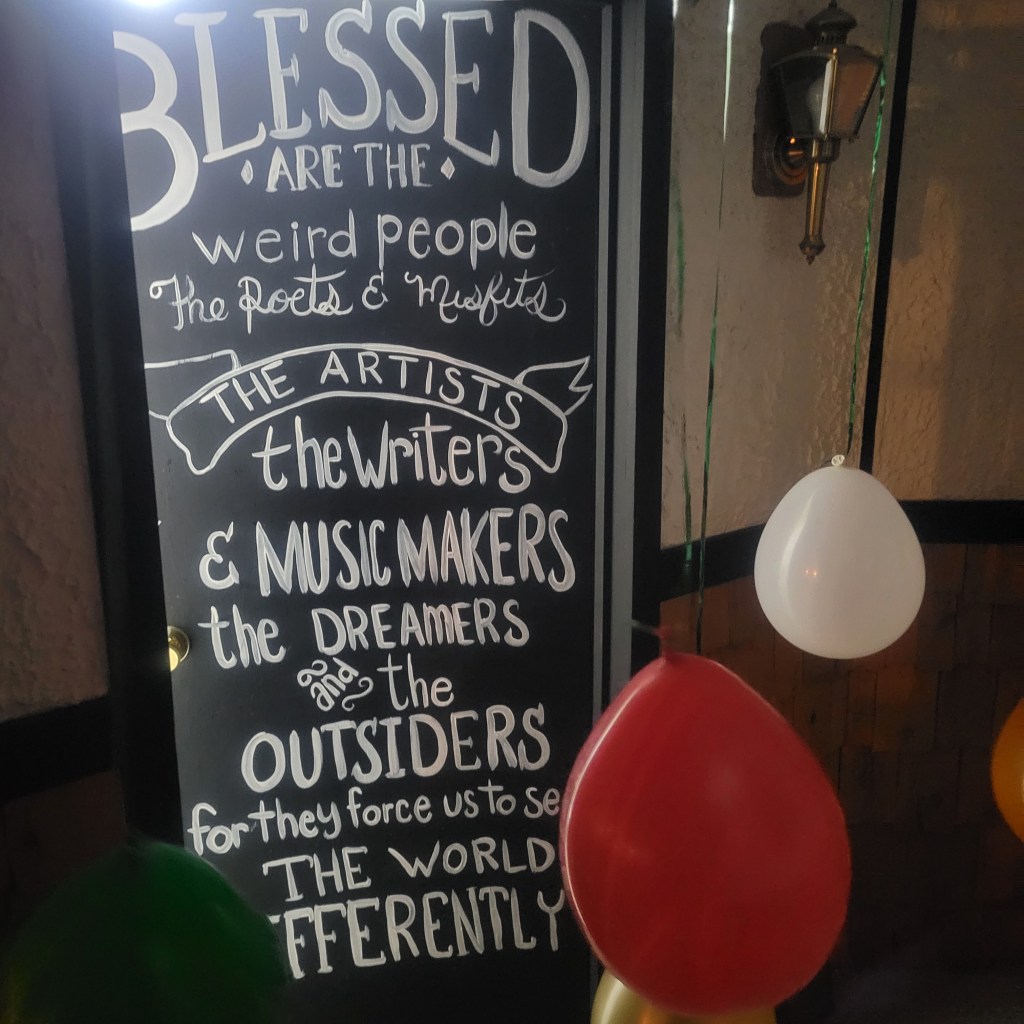 BLESSED
ARE THE
weird people
The Poets & Misfits
THE ARTISTS
the Writers
& MUSIC MAKERS
the DREAMERS
and the
OUTSIDERS
for they force us to se
THE WORLD
FFERENTLY